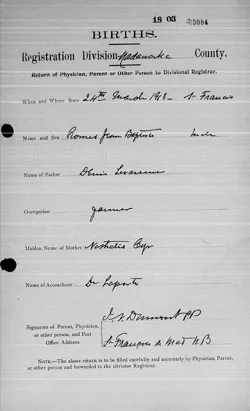 18 03 25084
BIRTHS.
Registration Division Madawaska County.
Return of Physician, Parent or Other Person to Divisional Registrar.
When and Where Born 24th March 1918 St Francis
Name and Sex Romeo Jean Baptiste Male
Name of Father Denis Levasseur
Occupation farmer
Maiden Name of Mother Cyr
Name of Accoucheur Dr Laporte
Signature of Parent, Physician,
or other Person, and Post
Office Address
St François de Mad N.B
NOTE.—The above return is to be filled carefully and accurately by Physician, Parent,
or other person and forwarded to the Division Registrar.